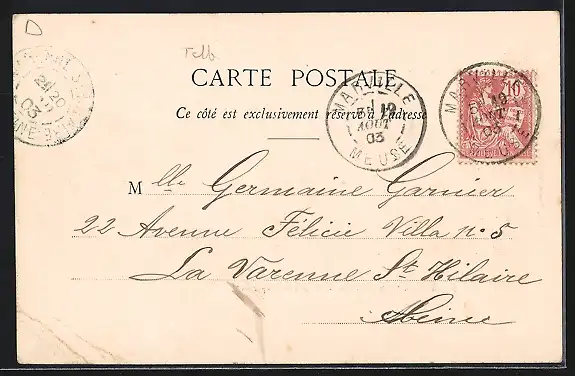 CARTE POSTALE
Ce côté est exclusivement réservé à l'adresse
MARVILLE
12
AOUT
03
MEUSE
10
12
AOUT
03
20
03
Mlle Germaine Garnier
22 Avenue Félicie Villa no 5
La Varenne St Hilaire
Seine